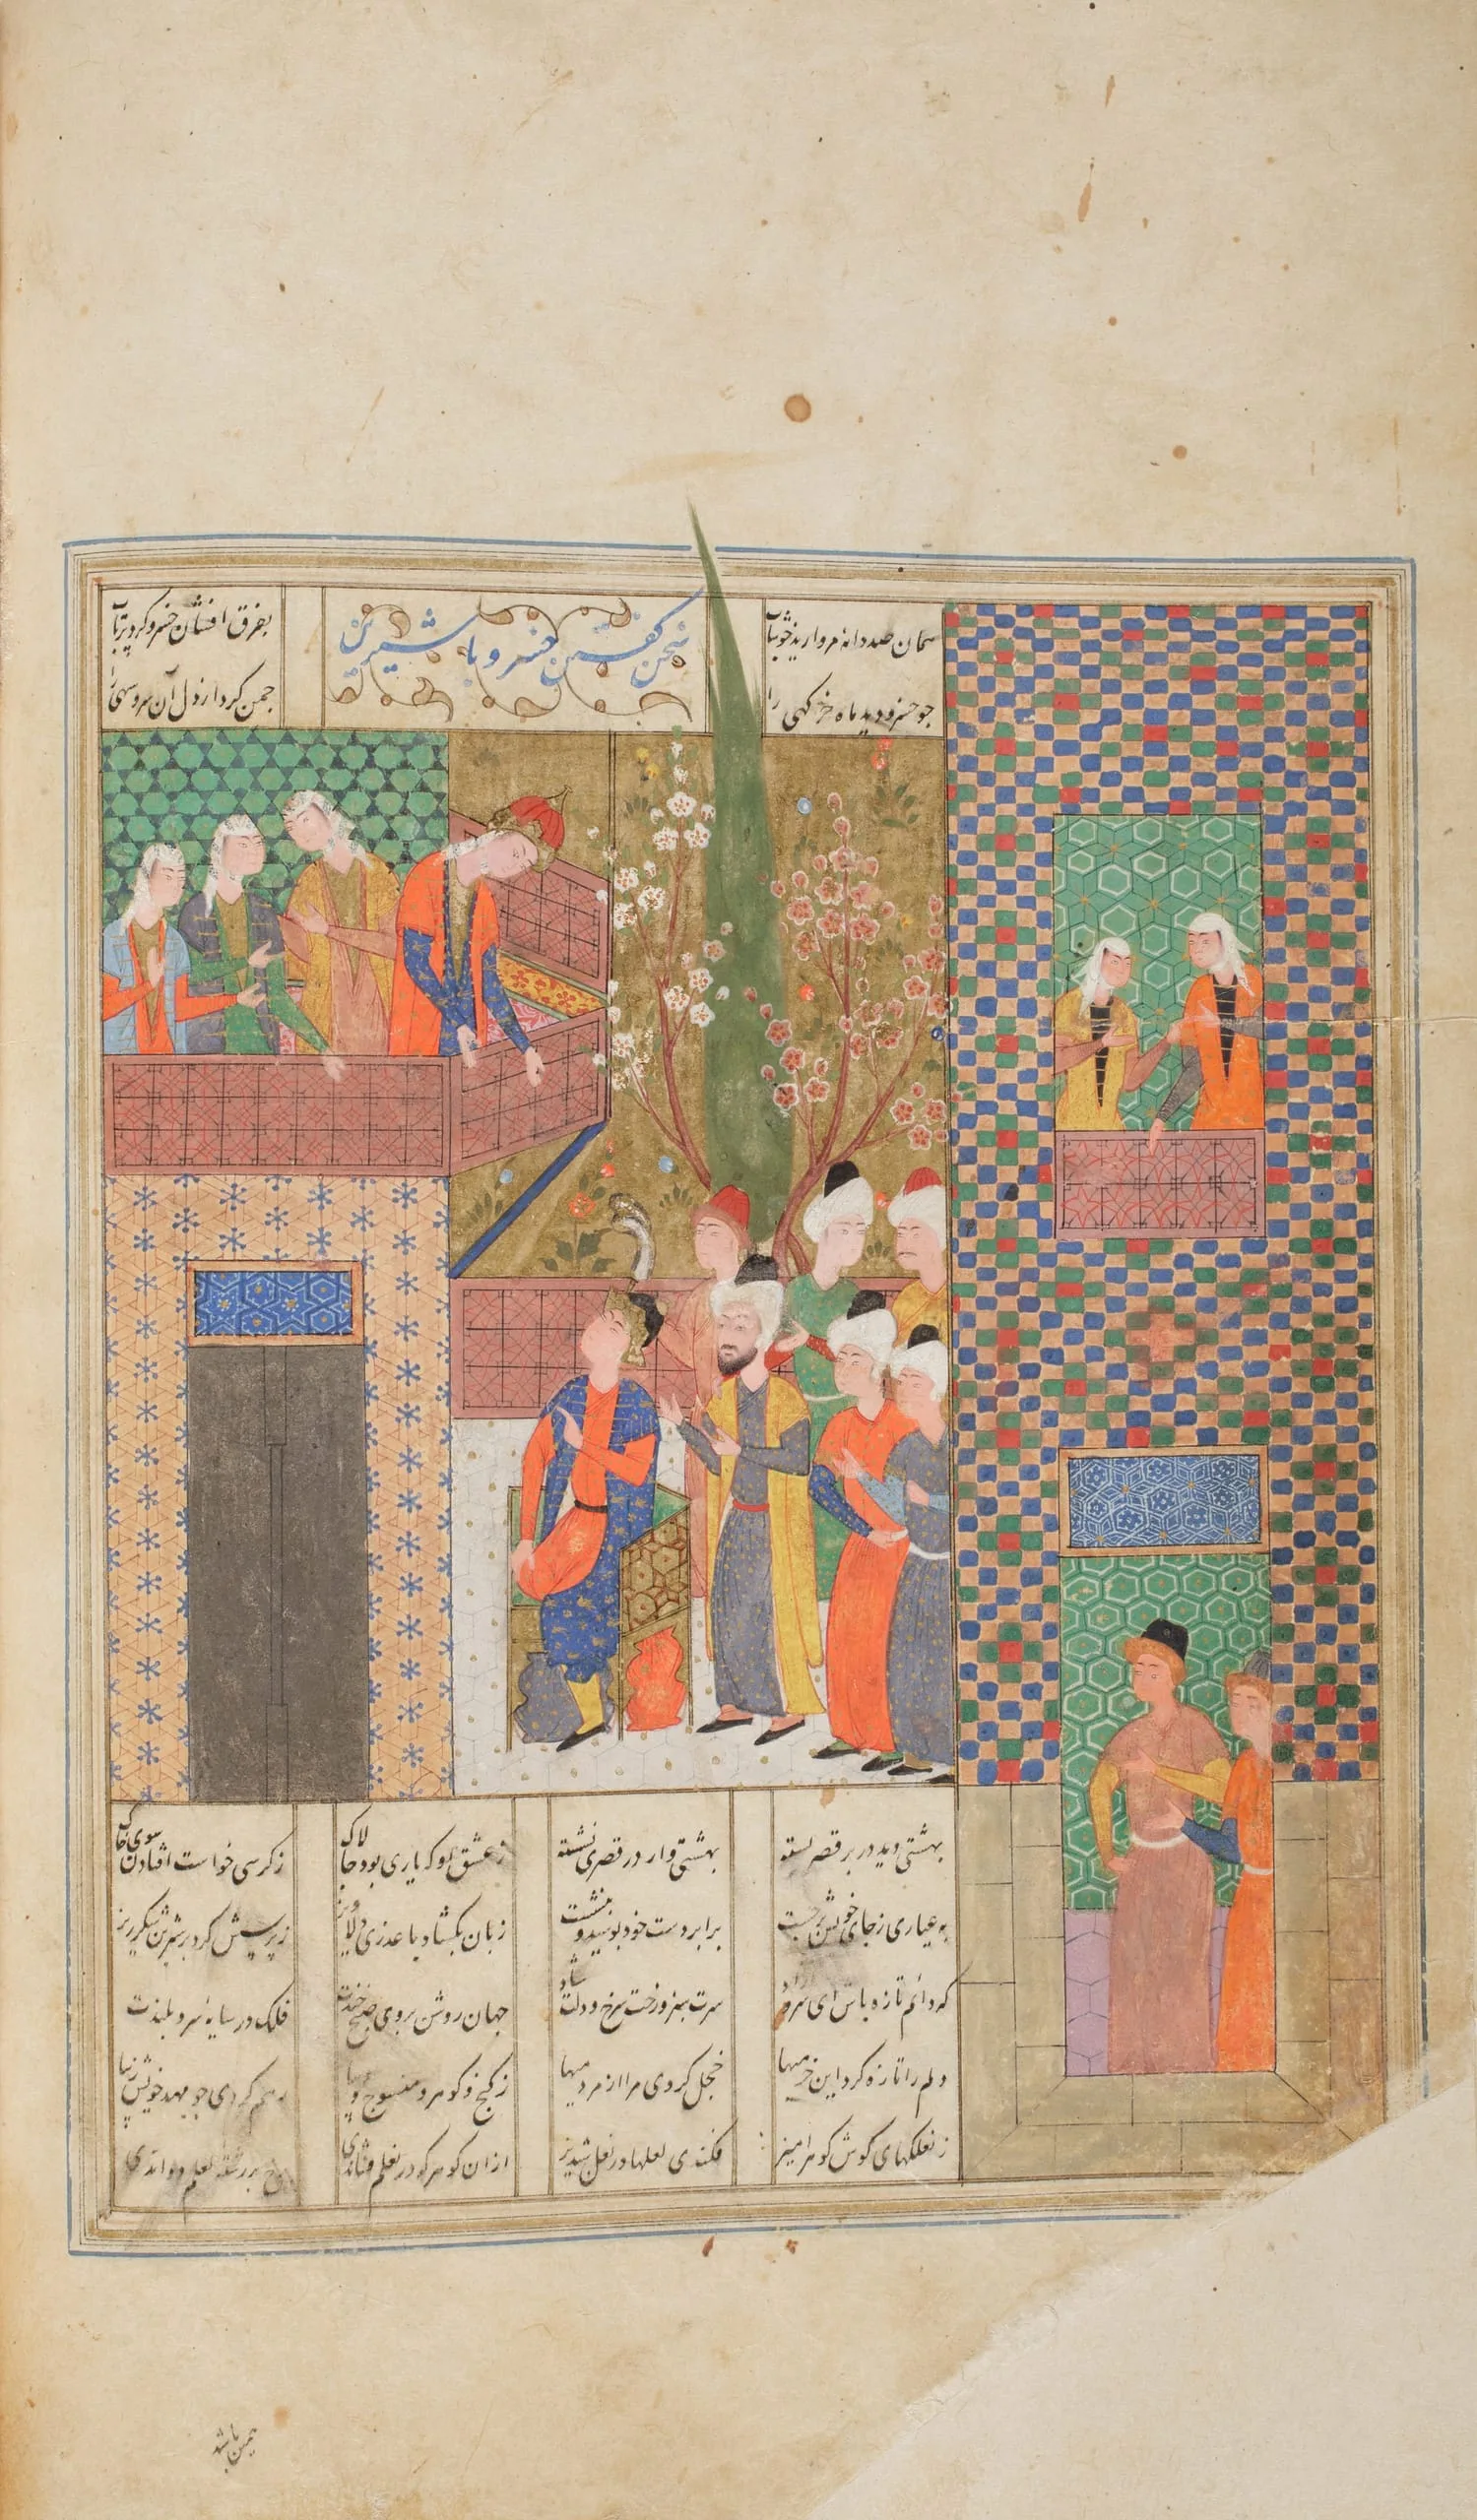 همان صد دانه مروارید خوشاب بفرق افشان خسرو کرد پرتاب
سخن گفتن خسرو با شیرین
چو خسرو دید ماه خرگهی را چمن کرد از دل آن سرو سهی را
بهشتی دید در بر قصر بسته بهشتی وار در قصری نشسته
ز عشق او که یاری بود چالاک ز کرسی خواست افتادن سوی خاک
به عیاری ز جای خویش برجست برابر دست خود بوسید و بنشست
زبان بگشاد با عذری دلاویز ز پرسش کرد بر شیرین شکرریز
که دائم تازه باش ای سرو آزاد سرت سبز و رخت سرخ و دلت شاد
جهان روشن بروی صبح خندت فلک در سایهٔ سرو بلندت
دلم را تازه کرد این خرمیها خجل کردی مرا از مردمیها
ز گنج و گوهر و منسوج و دیبا رهم کردی چو مهد خویش زیبا
ز نعلکهای گوش گوهرآمیز فکندی لعلها در نعل شبدیز
ازان گوهر که در نعلم فشاندی بر رشته لعلم دواندی
همین باشد